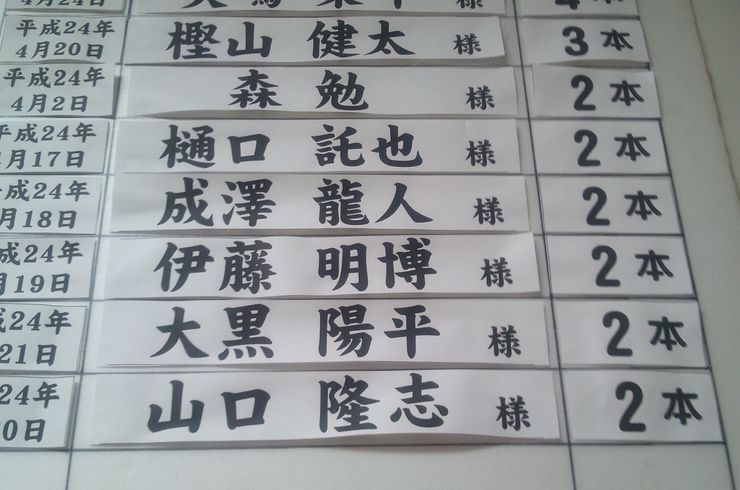 4月24日 様 4本
平成24年
4月20日 樫山 健太 様 3本
平成24年
4月2日 森 勉 様 2本
平成24年
月17日 樋口 託也 様 2本
成24年
月18日 成澤 龍人 様 2本
成24年
月19日 伊藤 明博 様 2本
24年
21日 大黒 陽平 様 2本
24年
0日 山口 隆志 様 2本